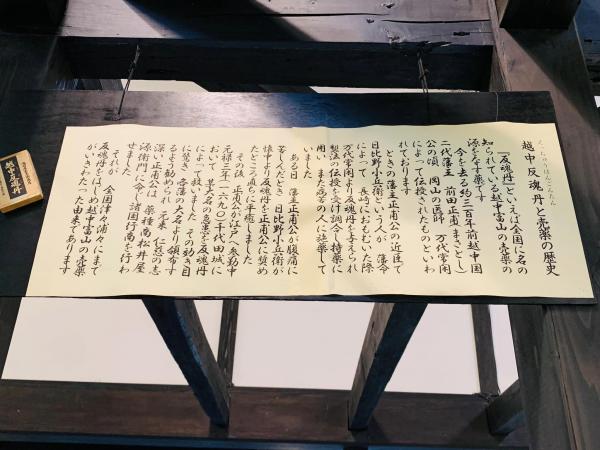 えっちゅうはんごんたん
越中反魂丹と売薬の歴史
『反魂丹』といえば全国に名の
知られている越中富山の売薬の
源をなす薬です
今を去る約三百年前越中国
二代藩主 前田正甫(まさとし)
公の頃 岡山の医師 万代常閑
によって伝授されたものといわ
れております
ときの藩主正甫公の近臣で
日比野小兵衛という人が 藩命
によって 長崎におもむいた際
万代常閑より反魂丹を与えられ
製法の伝授を受け調合し持薬に
用い また病苦の人に施薬して
いました
ある日 藩主正甫公が腹痛に
苦しんだとき 日比野小兵衛が
懐中より反魂丹を正甫公に奨め
たところ直ちに平癒しました
その後 正甫公が江戸へ参勤中
元禄三年(一六九〇)千代田城に
おいて 某大名の急患を反魂丹
によって救いました その効き目
に驚き 諸藩の大名より領布す
るよう勧められ 元来 仁慈の志
深い正甫公は 薬種商松井屋
源右衛門に命じ諸国行商を行わ
せました
それが 全国津々浦々にまで
反魂丹をはじめ越中富山の売薬
がいきわたった由来であります
越中反魂丹